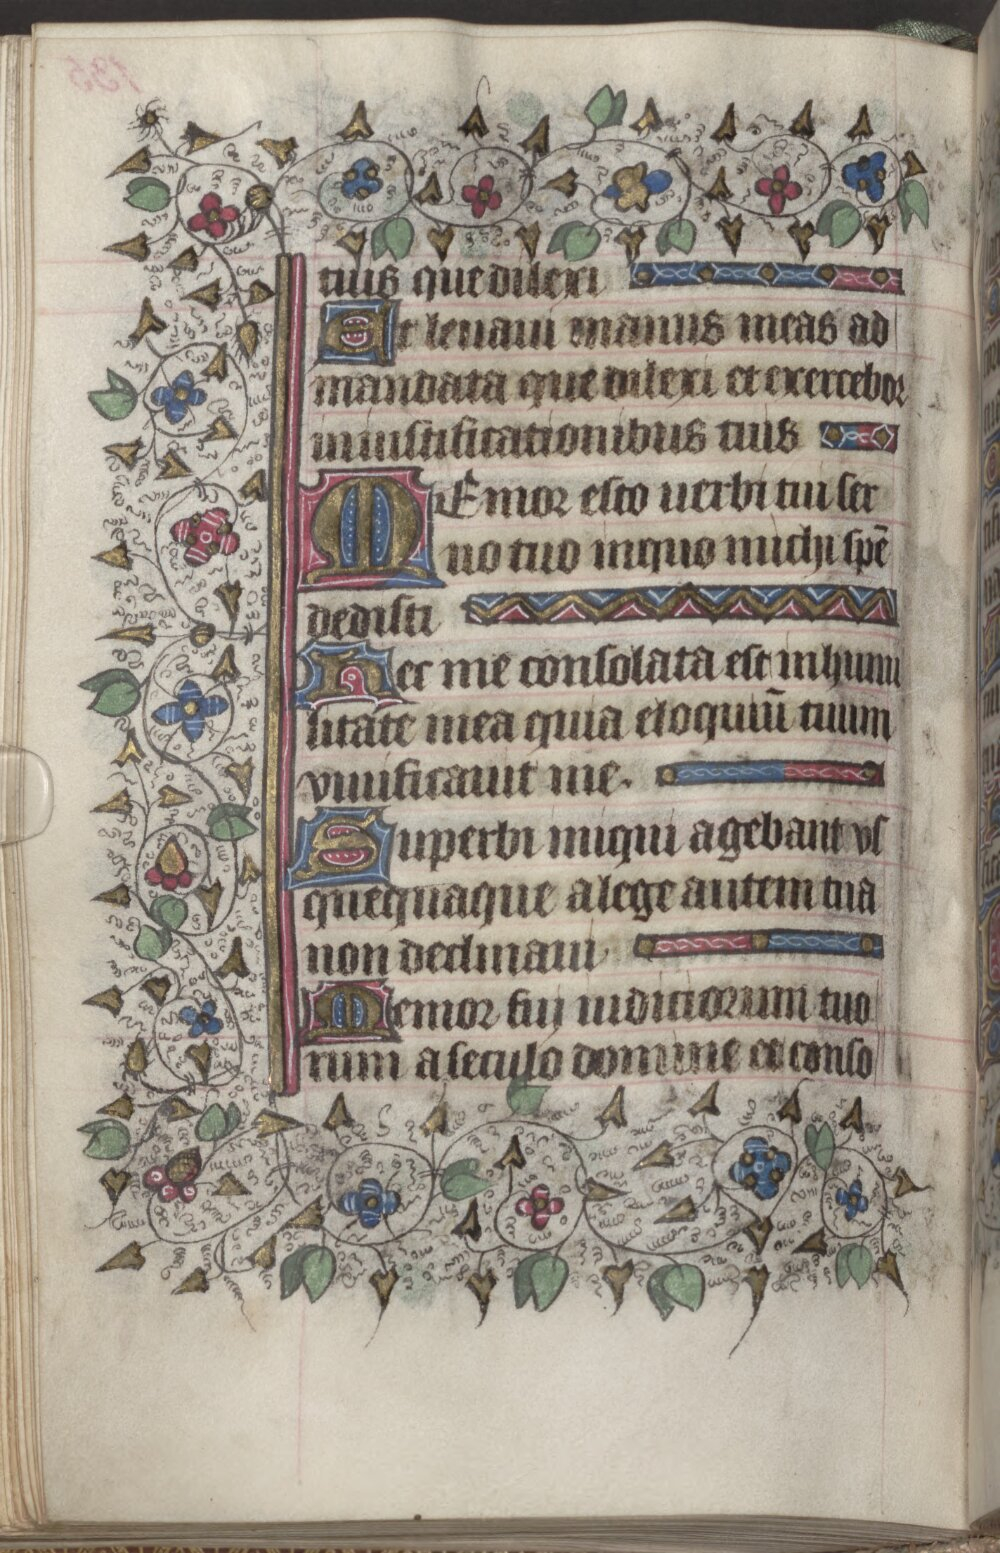 tuis que dilexi
Et leuaui manus meas ad
mandata que dilexi et exercebor
in iustificationibus tuis
MEmor esto uerbi tui ser
uo tuo in quo michi spē
dedisti
Hec me consolata est in humi
litate mea quia eloquiū tuum
viuificauit me.
Superbi iniqui agebant vs
quequaque a lege autem tua
non declinaui
Memor fui iudiciorum tuo
rum a seculo domine et conso